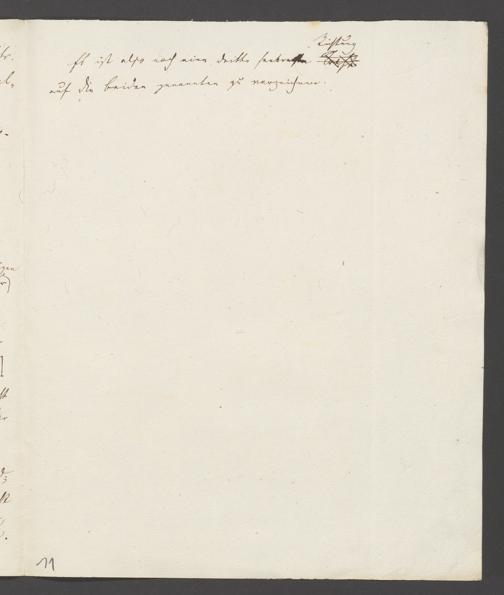 Richtung
Es ist also noch eine dritte senkrechte
auf die beiden genannten zu verzeichnen.
11